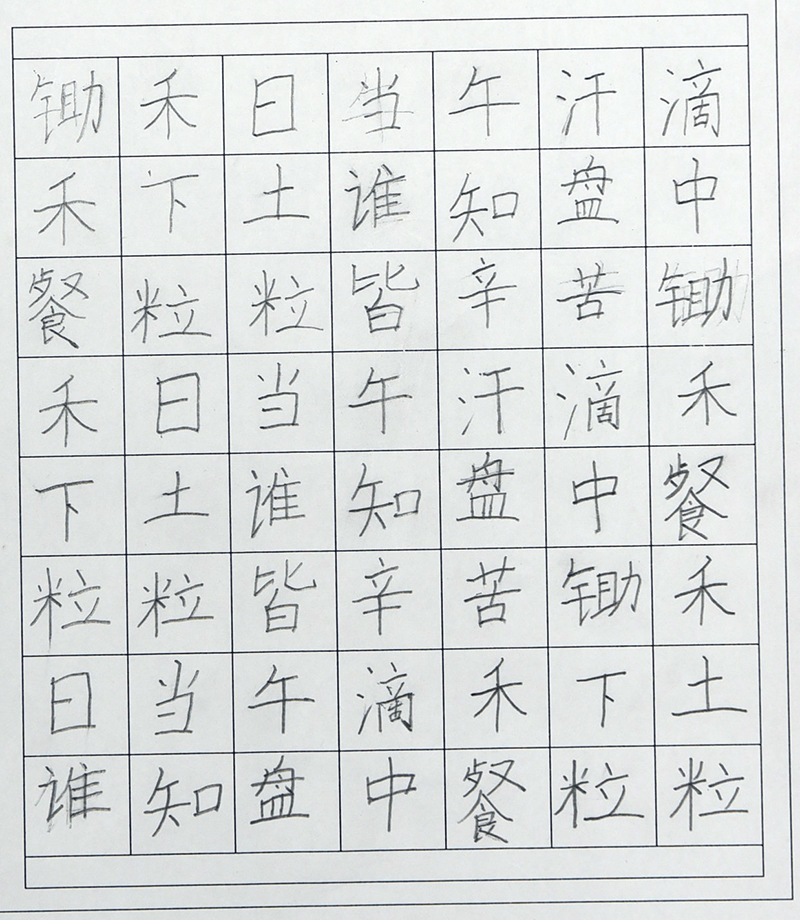 锄禾日当午汗滴
禾下土谁知盘中
餐粒粒皆辛苦锄
禾日当午汗滴禾
下土谁知盘中餐
粒粒皆辛苦锄禾
日当午滴禾下土
谁知盘中餐粒粒